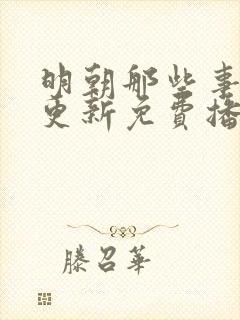 明朝那些事
更新免费播
滕召華